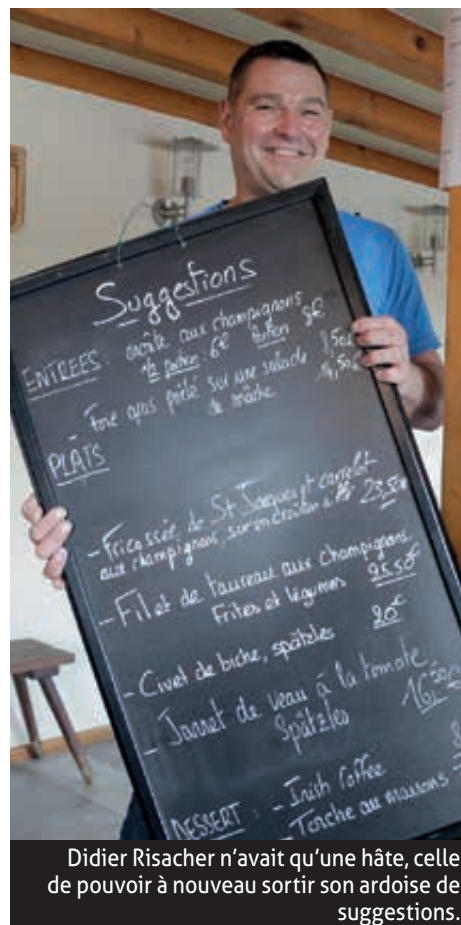 Suggestions
ENTREES: croûte aux champignons
1/2 portion: 6€ Portion 8€
Foie gras poêlé sur une salade
de mâche 14,50€
PLÂTS
- Fricassée de St Jacques et carrelet
aux champignons, sur un croûton 23,50€
- Filet de taureau aux champignons
Frites et légumes 25.50€
- Civet de biche, spätzles 20€
- Jarret de veau à la tomate
Spätzles 16,50€
DESSERT: - Irish Coffee
- Torche aux marrons
Didier Risacher n'avait qu'une hâte, celle
de pouvoir à nouveau sortir son ardoise de
suggestions.